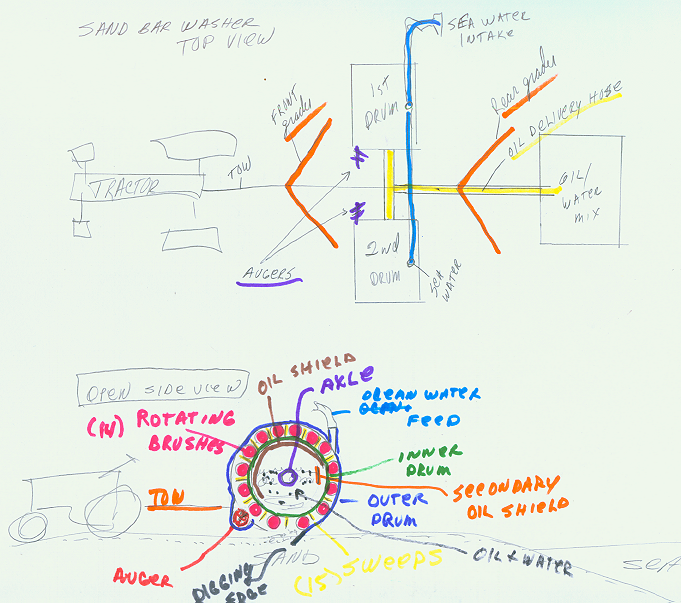 SAND BAR WASHER
TOP VIEW
SEA WATER
INTAKE
1ST
DRUM
FRONT
grader
Rear grader
OIL DELIVERY HOSE
TOW
TRACTOR
OIL/
WATER
MIX
AUGERS
2nd
DRUM
SEA
WATER
OPEN SIDE VIEW
OIL SHIELD
AXLE
OCEAN WATER
FEED
(14) ROTATING
BRUSHES
INNER
DRUM
SECONDARY
OIL SHIELD
TOW
OUTER
DRUM
AUGER
DIGGING
EDGE
SAND
(15) SWEEPS
OIL & WATER
SEA